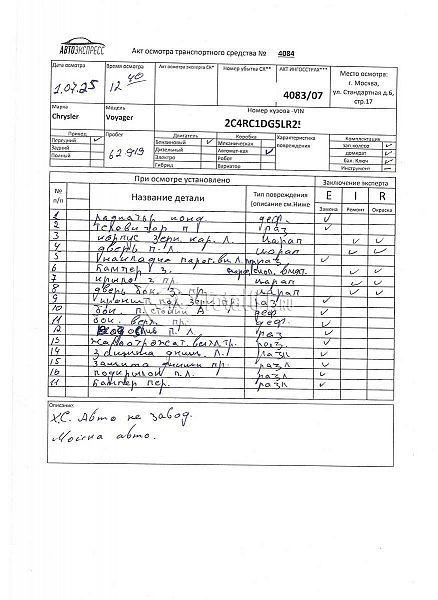 АВТОЭКСПРЕСС
Акт осмотра транспортного средства № 4084
Дата осмотра Время осмотра Акт осмотра эксперта СК* Номер убытка СК** АКТ ИНГОССТРАХ***
1.07.25 12 40 4083/07
Место осмотра:
г. Москва,
ул. Стандартная д.6,
стр.17
Марка Модель Номер кузова -VIN
Chrysler Voyager 2C4RC1DG5LR2!
Привод Пробег Двигатель Коробка Характеристика повреждения Комплектация
Передний ✓ Бензиновый ✓ Механическая зап.колесо ✓
Задний 62919 Дизельный Автомат-кая ✓ домкрат ✓
Полный Электро Робот бал. Ключ ✓
Гибрид Вариатор Инструмент -
При осмотре установлено Заключение эксперта
№ п/п Название детали Тип повреждения (описание см.Ниже E I R
Замена Ремонт Окраска
1 деф. ✓
2 п раз ✓
3 корпус зерк. нар. Л. царап ✓ ✓
4 дверь п.л. царап ✓ ✓
5 накладка ✓
6 Бампер з. ✓ ✓
7 крыло з пр. царап ✓ ✓
8 дверь бок. з. пр. царап ✓ ✓
9 раз ✓
10 бок. п. стойки А деф ✓
11 бок. деф. ✓
12 п. л. раз ✓
13 раз. ✓
14 л. разл ✓
15 защита пр. разл ✓
16 подкрылок п.л. разл ✓
17 Бампер пер. разл ✓
Описание:
Х.С. Авто не завод.
Мойка авто.